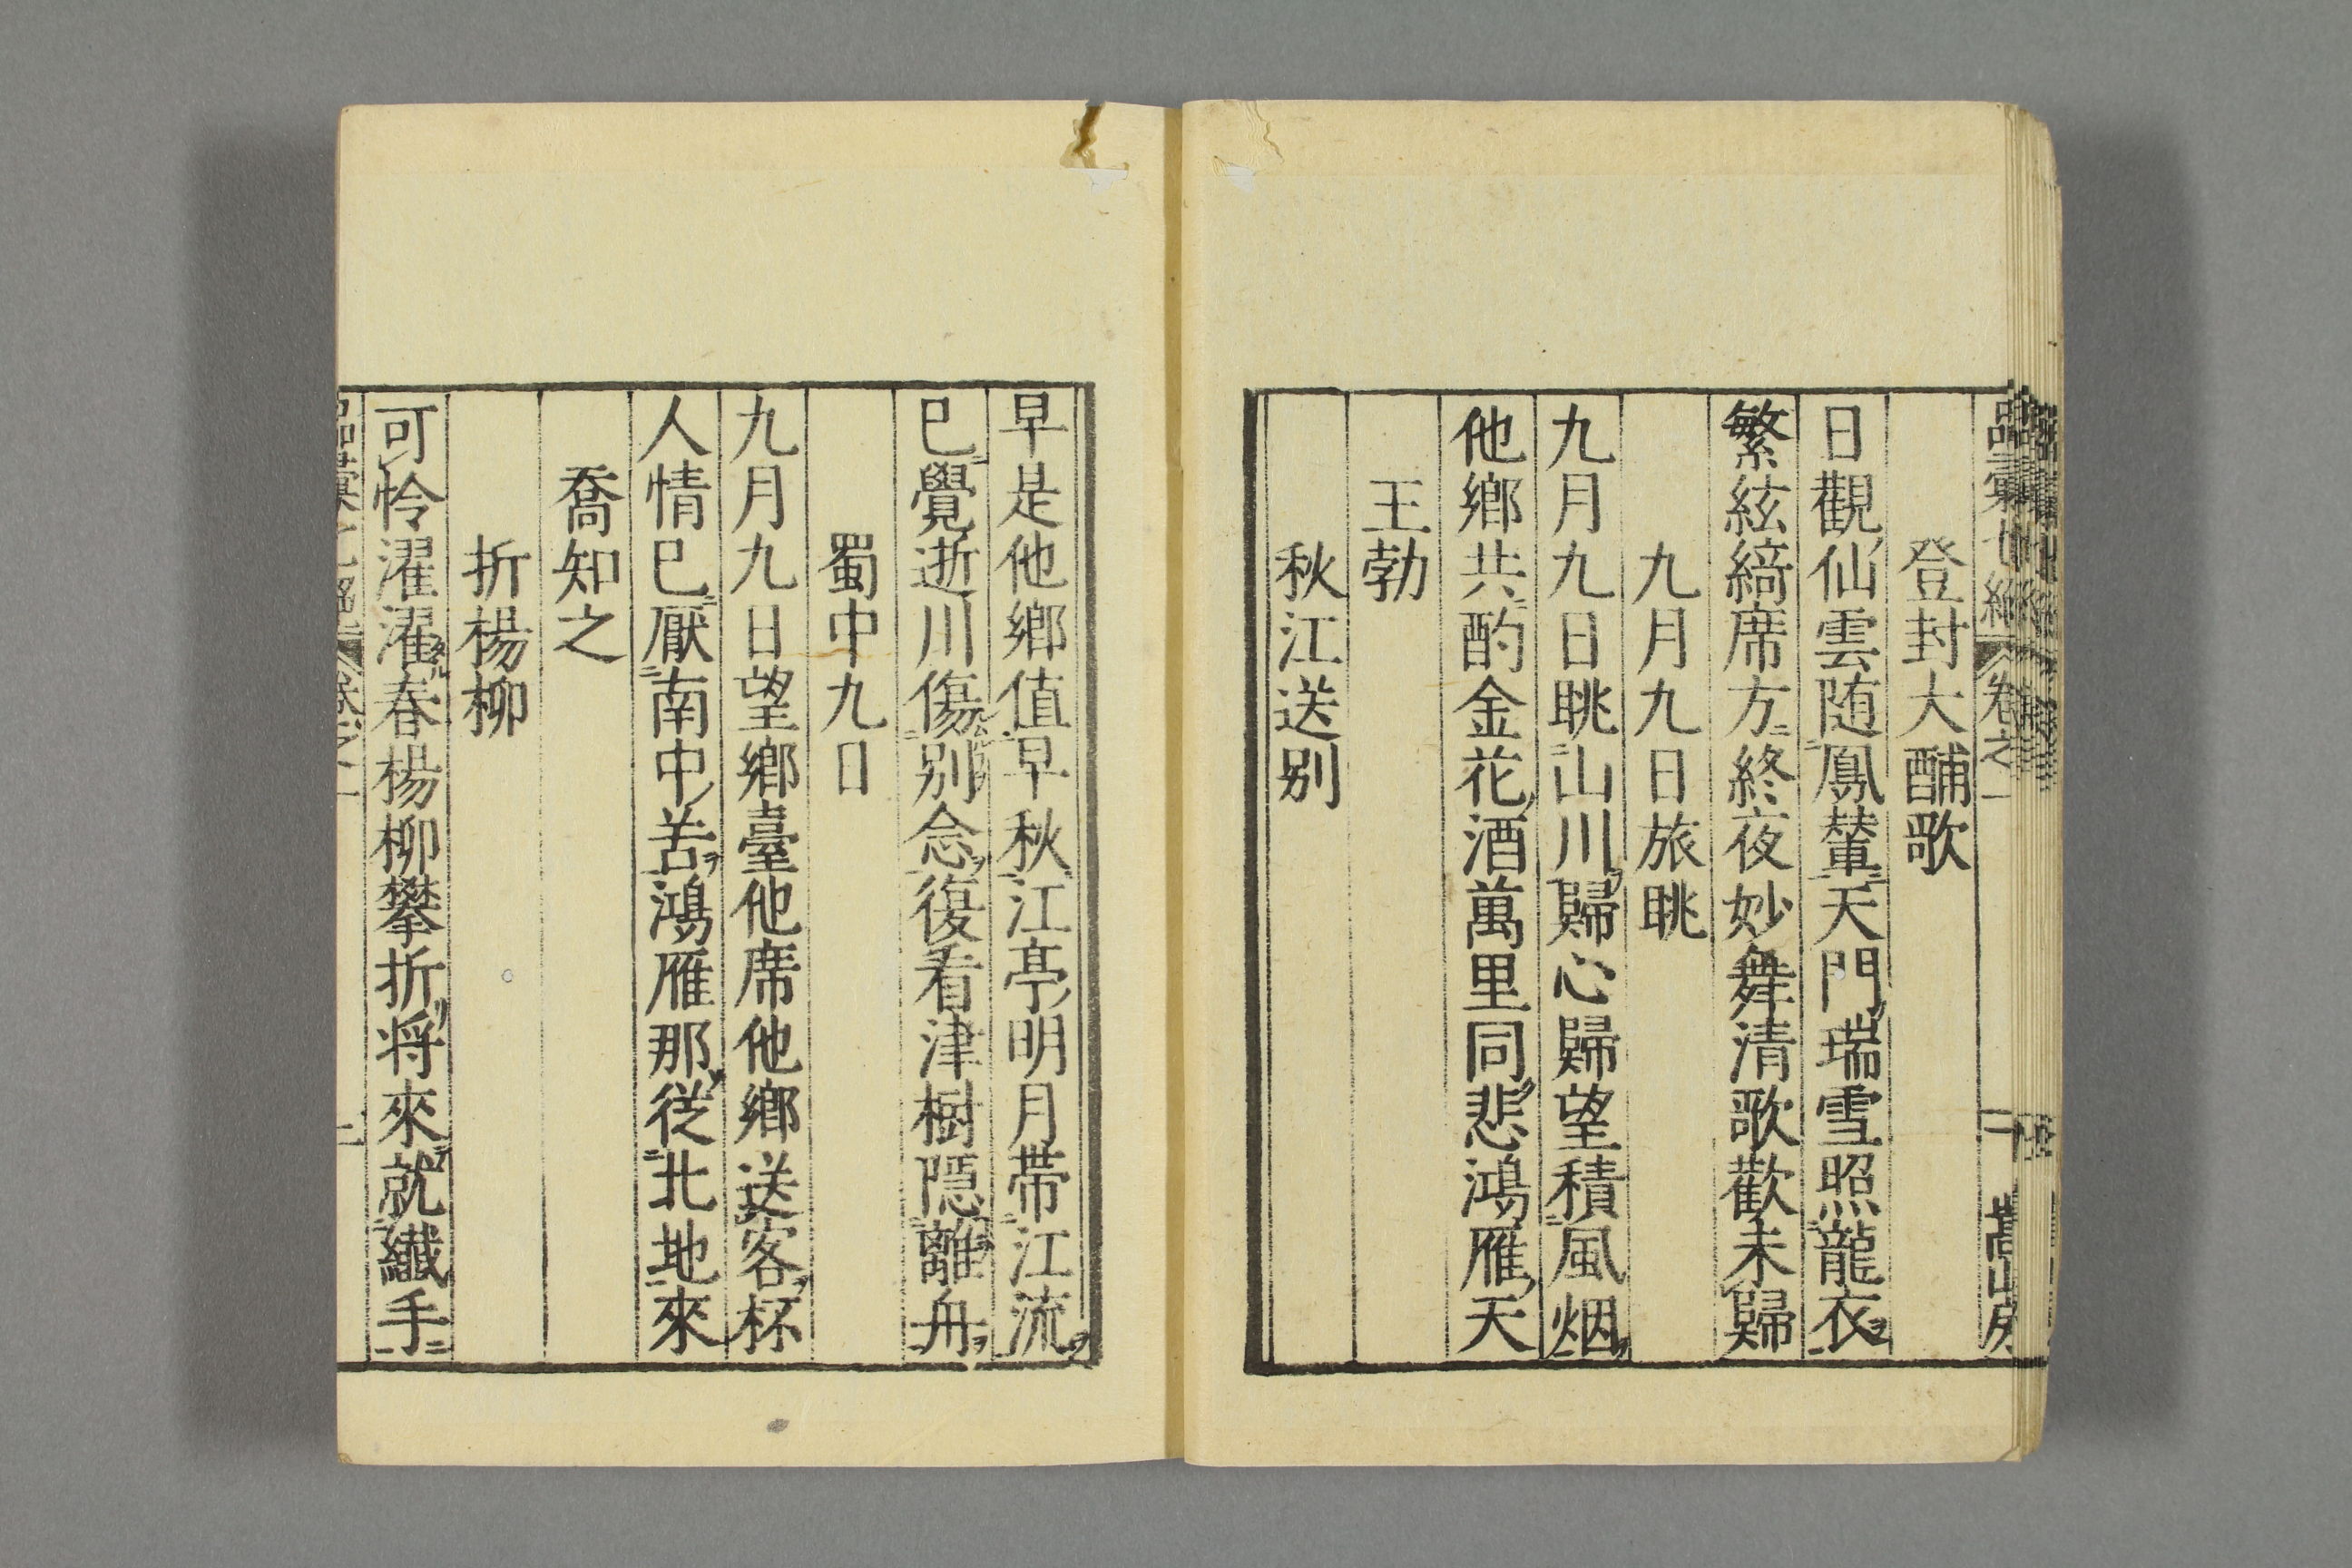 品彙七絶 卷之一 二 嵩山房
登封大酺歌
日觀仙雲随鳳輦天門瑞雪照龍衣
繁絃綺席方終夜妙舞清歌歡未歸
九月九日旅眺
九月九日眺山川歸心歸望積風烟
他鄉共酌金花酒萬里同悲鴻雁天
王勃
秋江送别
早是他鄉值早秋江亭明月帶江流
已覺逝川傷别念復看津樹隱離舟
蜀中九日
九月九日望鄉臺他席他鄉送客杯
人情已厭南中苦鴻雁那從北地來
喬知之
折楊柳
可怜濯濯春楊柳攀折将來就纎手